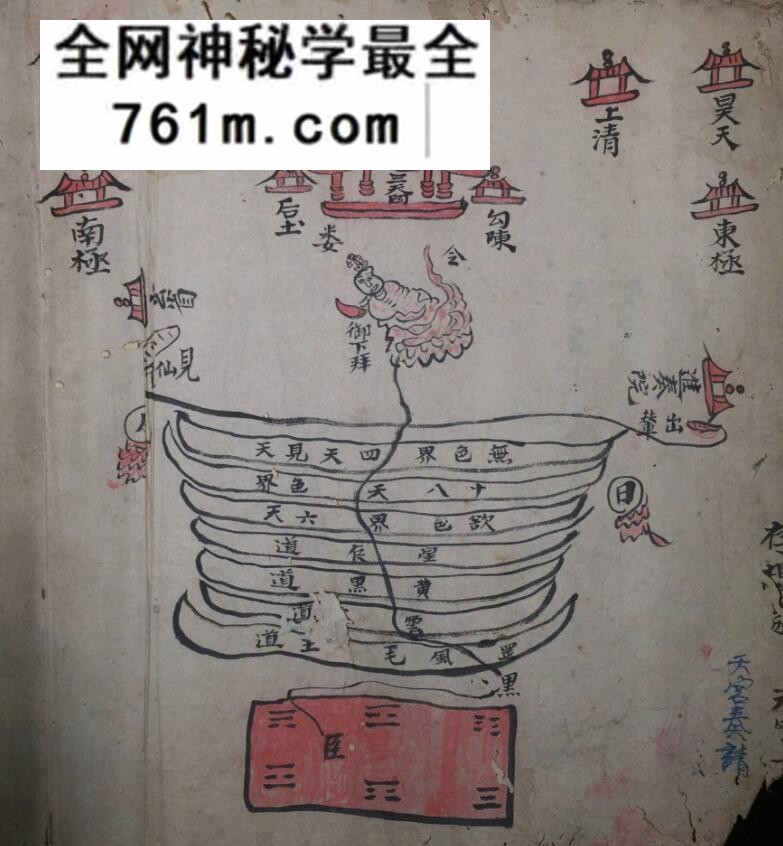 全网神秘学最全
761m.com
上清
昊天
三天門
南極
后土
婁
勾陳
東極
令
御下拜
見
仙
進奏院
出
輦
無色界四天見天
十八天色界
欲色界六天
星侯道
黄黑道
雲道
罡風毛王道
黑
日
臣
天客奏請